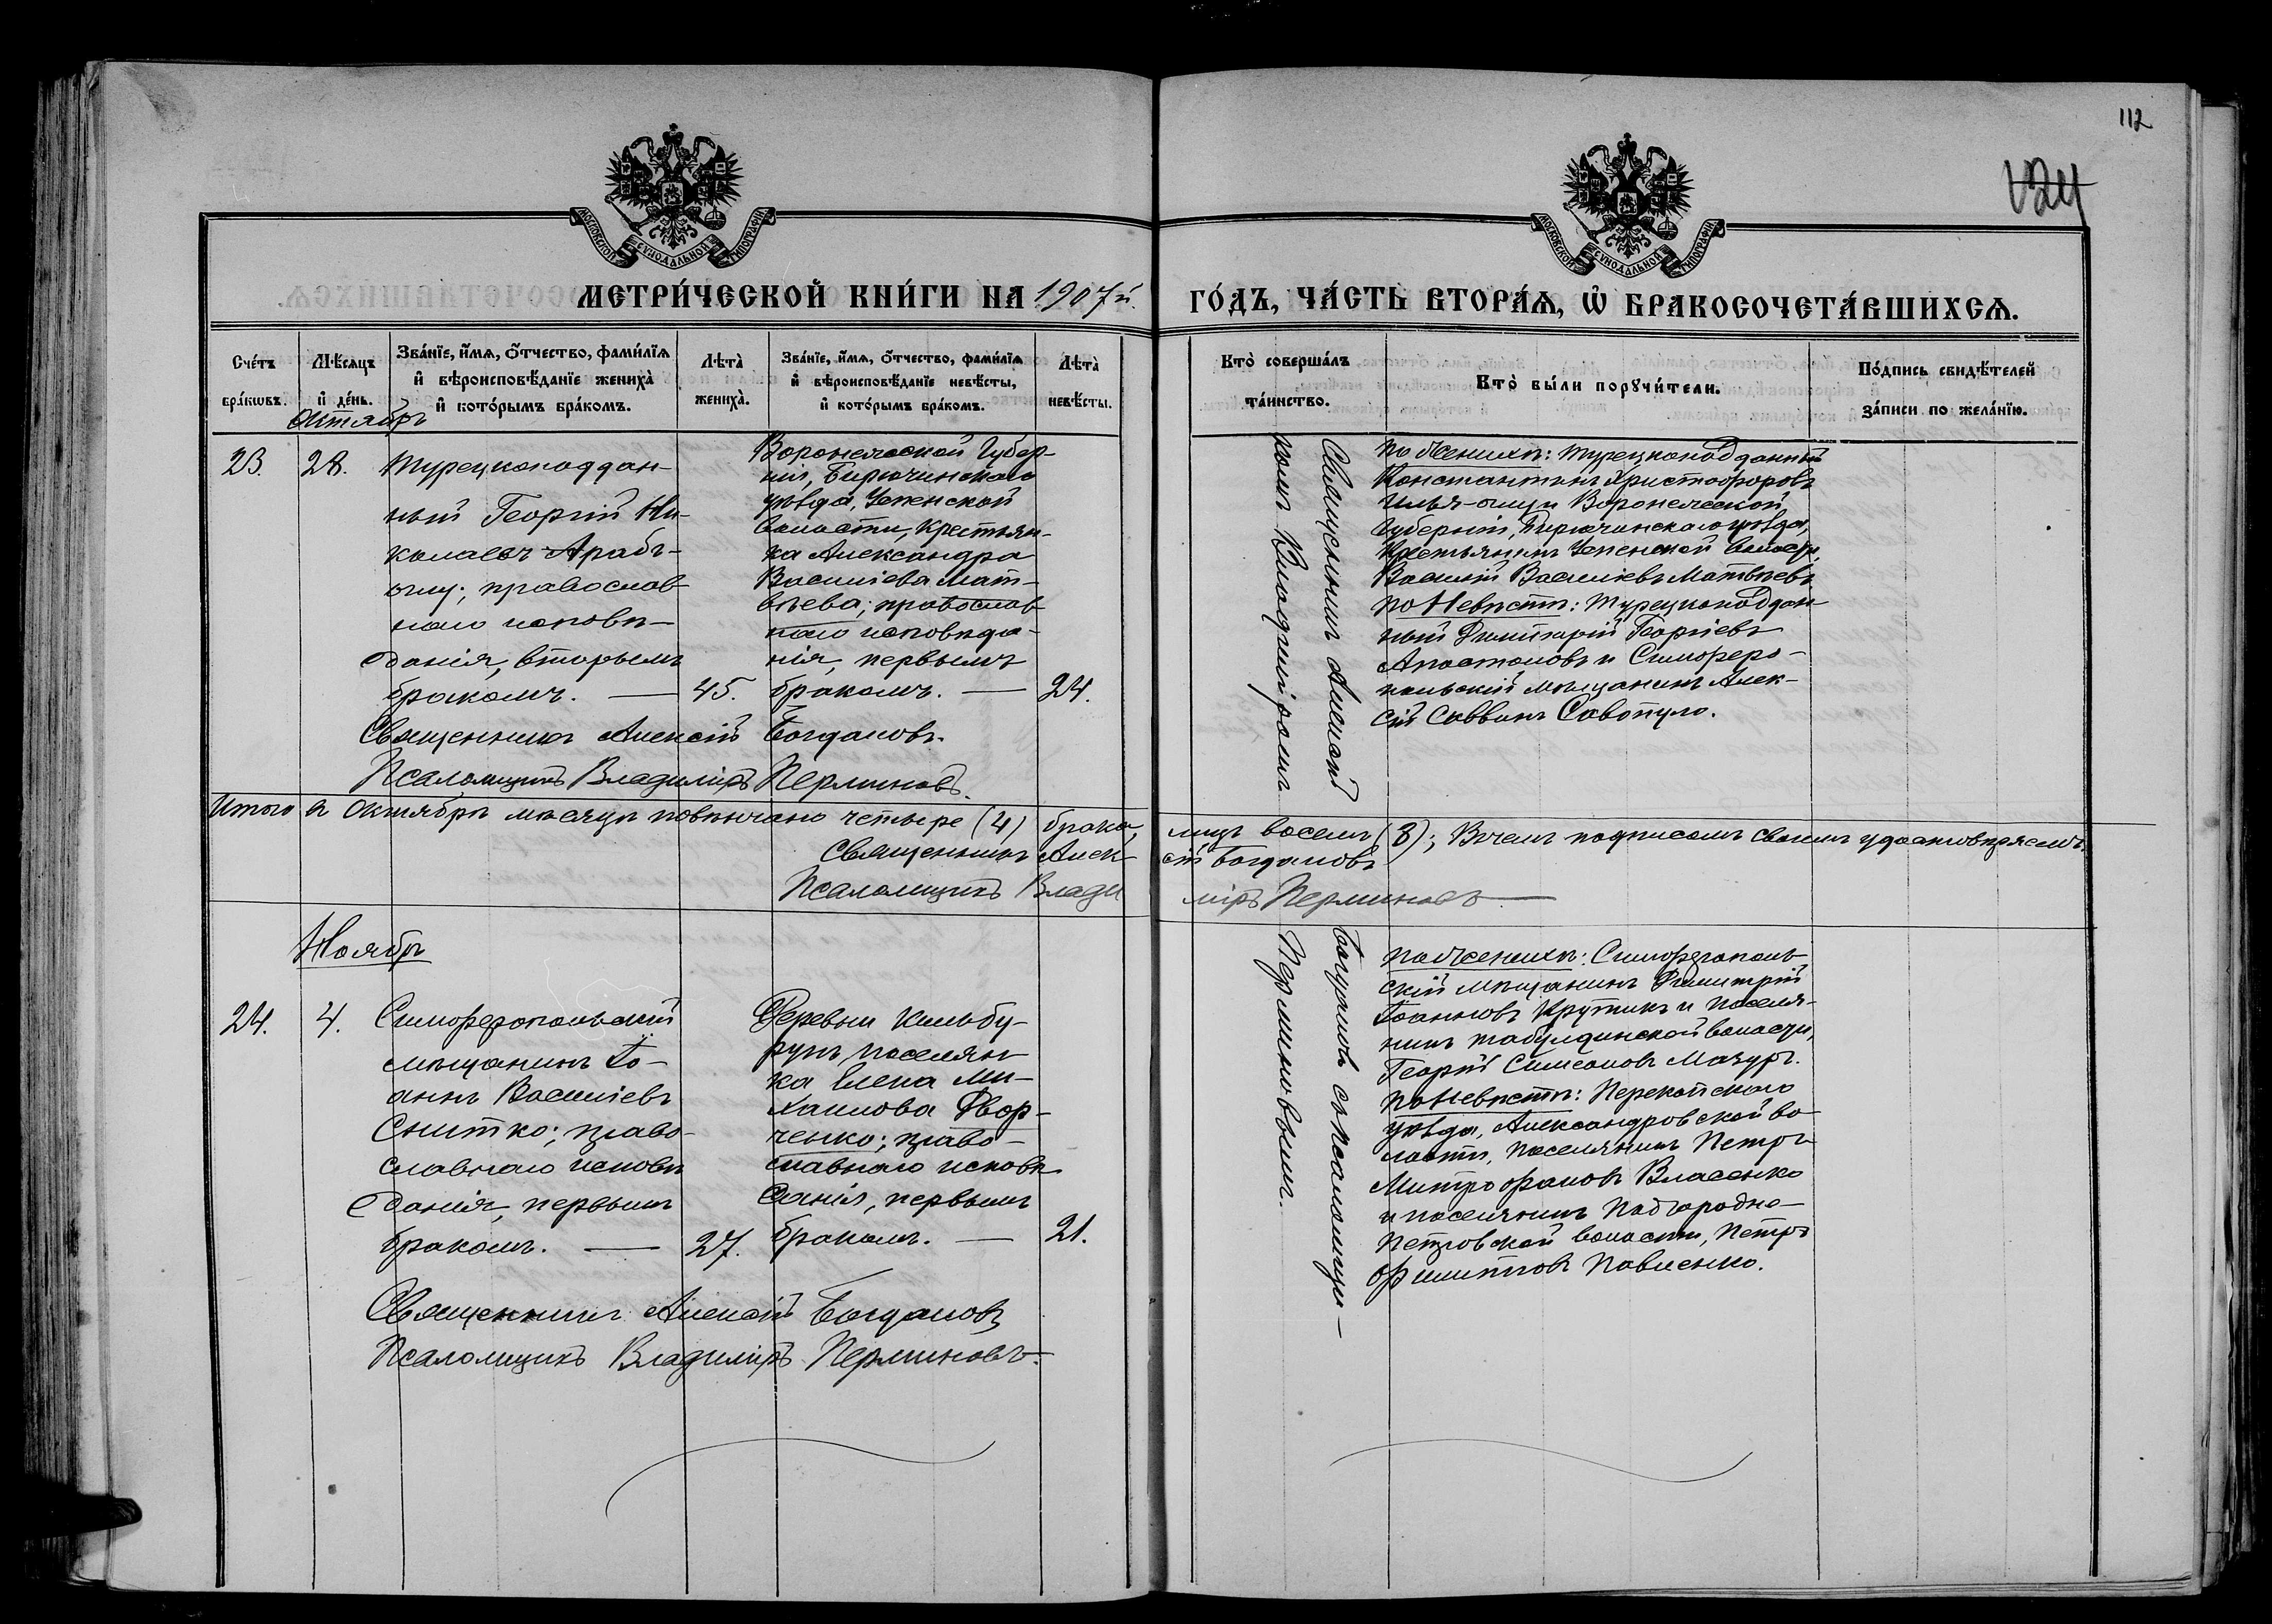 112
124
МОСКОВСКОЙ СѴНОДАЛЬНОЙ ТИПОГРАФІИ
МОСКОВСКОЙ СѴНОДАЛЬНОЙ ТИПОГРАФІИ
МЕТРИ́ЧЕСКОЙ КНИ́ГИ НА 1907й.
ГО́ДЪ, ЧА́СТЬ ВТОРА́Ѧ, Ѡ҆ БРАКОСОЧЕТА́ВШИХСѦ.
Сче́тъ
бра́кѡвъ.
Мѣ́сѧцъ
и҆ де́нь.
Зва́нїе, и҆́мѧ, ѻ҆́тчество, фами́лїѧ
и҆ вѣроисповѣ́данїе жениха̀
и҆ кото́рымъ бра́комъ.
Лѣта̀
жениха̀.
Зва́нїе, и҆́мѧ, ѻ҆́тчество, фами́лїѧ
и҆ вѣроисповѣ́данїе невѣ́сты,
и҆ кото́рымъ бра́комъ.
Лѣта̀
невѣ́сты.
Кто̀ соверша́лъ
та́инство.
Кто̀ бы́ли порꙋчи́тели.
По́дпись свидѣ́телей
за́писи по жела́нїю.
Октябрь
23.
28.
Турецкоподдан-
ный Георгій Ни-
колаевъ Арабъ-
оглу; православ
наго исповѣ-
данія, вторымъ
бракомъ. —
45.
Воронежской Губер-
ніи, Бирючинскаго
уѣзда, Успенской
волости, крестьян-
ка Александра
Василіева Мат-
вѣева; православ
наго исповѣда-
нія, первымъ
бракомъ. —
24.
Священникъ Алексій Богдановъ.
Псаломщикъ Владиміръ Перминовъ.
Священникъ Алексій
комъ Владиміромъ
По женихѣ: Турецкоподданный
Константинъ Христофоровъ
Илья-оглу и Воронежской
Губерніи, Бирючинскаго уѣзда,
крестьянинъ Успенской волости,
Василій Василіевъ Матвѣевъ
По Невѣстѣ: Турецкоподдан-
ный Димитрій Георгіевъ
Апостоловъ и Симферо-
польскій мѣщанинъ Алек-
сій Саввинъ Савопуло.
Итого въ Октябрѣ мѣсяцѣ повѣнчано четыре (4) брака,
лицъ восемь (8); Вчемъ подписомъ своимъ удостовѣряемъ.
Священникъ Алек-
сій Богдановъ
Псаломщикъ Влади
міръ Перминовъ —
Ноябрь
24.
4.
Симферопольскій
мѣщанинъ Іо-
аннъ Василіевъ
Снитко; право-
славнаго исповѣ
данія, первымъ
бракомъ. —
27.
Деревни Кильбу-
рунъ, поселян-
ка Елена Ми-
хаилова Двор-
ченко; право-
славнаго исповѣ
данія, первымъ
бракомъ. —
21.
Священникъ Алексій Богдановъ
Псаломщикъ Владиміръ Перминовъ.
Богдановъ съ псаломщи-
Перминовымъ.
По женихѣ: Симферополь-
скій мѣщанинъ Димитрій
Іоанновъ Крутикъ и поселя-
нинъ Табулдинской волости,
Георгій Симеоновъ Мазуръ.
По Невѣстѣ: Перекопскаго
уѣзда, Александровской во-
лости, поселянинъ Петръ
Митрофановъ Власенко
и поселянинъ Подгородне-
Петровской волости, Петръ
Филипповъ Павленко.